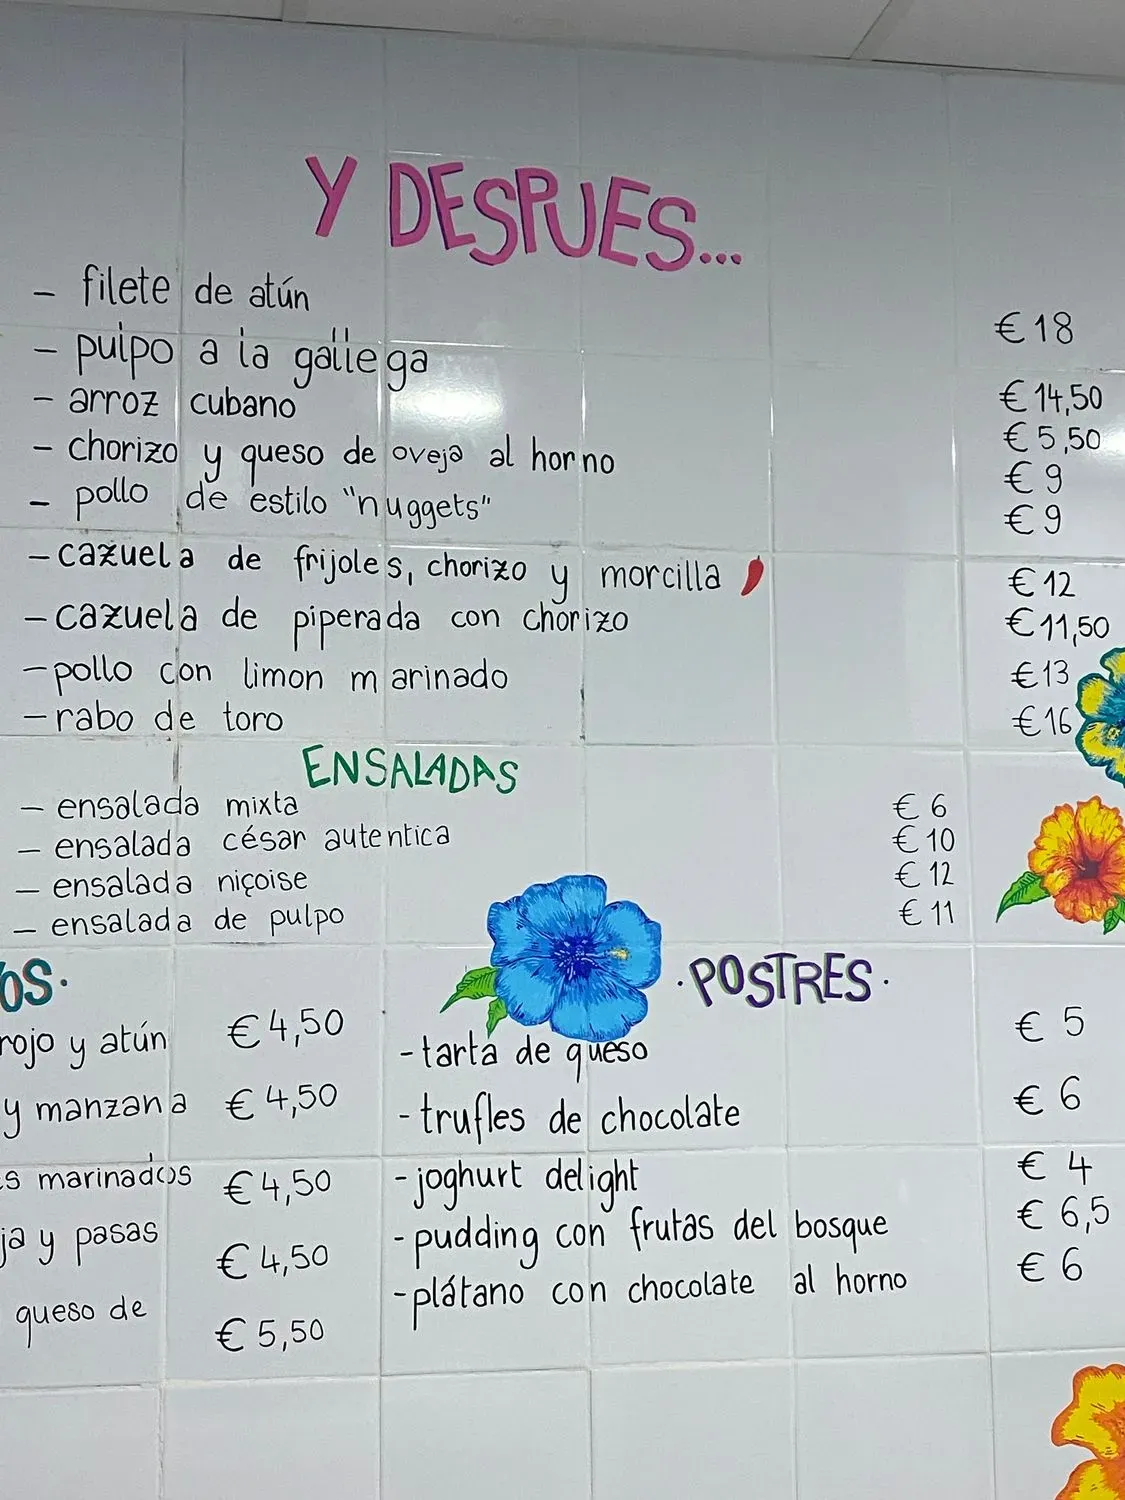 Y DESPUES...
- filete de atún € 18
- pulpo a la gallega € 14,50
- arroz cubano € 5,50
- chorizo y queso de oveja al horno € 9
- pollo de estilo "nuggets" € 9
- cazuela de frijoles, chorizo y morcilla € 12
- cazuela de piperada con chorizo € 11,50
- pollo con limon marinado € 13
- rabo de toro € 16
ENSALADAS
- ensalada mixta € 6
- ensalada césar autentica € 10
- ensalada niçoise € 12
- ensalada de pulpo € 11
OS.
rojo y atún € 4,50
y manzana € 4,50
s marinados € 4,50
ja y pasas € 4,50
queso de € 5,50
· POSTRES ·
- tarta de queso € 5
- trufles de chocolate € 6
- joghurt delight € 4
- pudding con frutas del bosque € 6,5
- plátano con chocolate al horno € 6